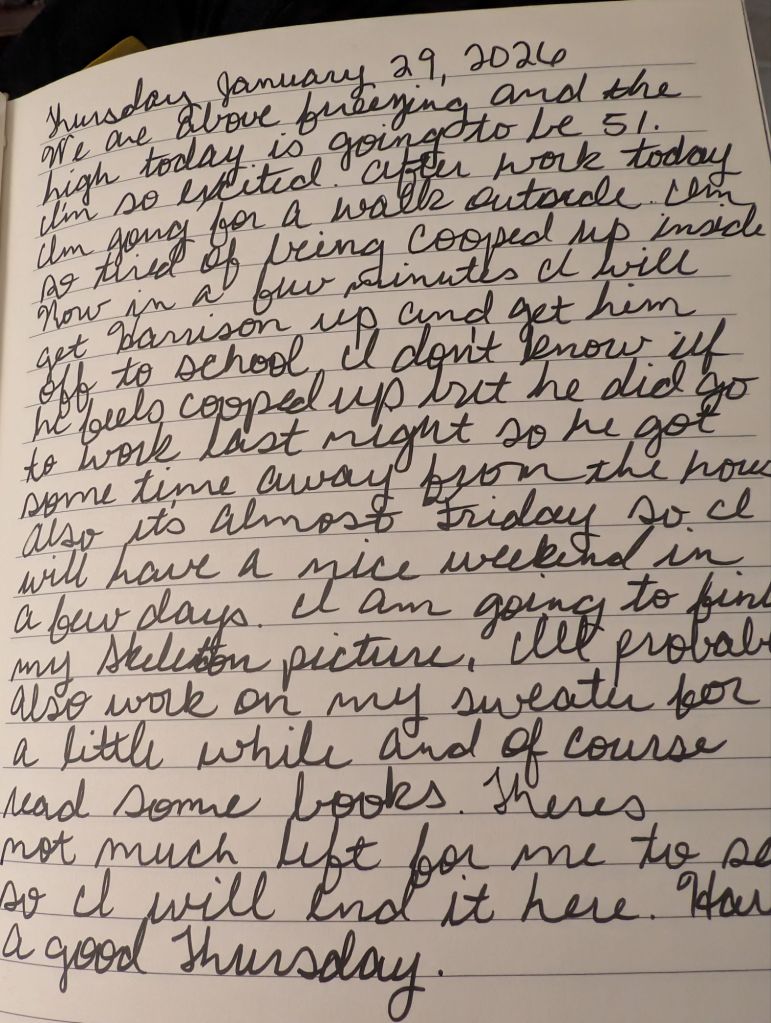 Thursday January 29, 2026
We are above freezing and the
high today is going to be 51.
I'm so excited. After work today
I'm going for a walk outside. I'm
so tired of being cooped up inside
Now in a few minutes I will
get Harrison up and get him
off to school. I don't know if
he feels cooped up but he did go
to work last night so he got
some time away from the hous
also its almost Friday so I
will have a nice weekend in
a few days. I am going to fini
my skeleton picture, I'll probab
also work on my sweater for
a little while and of course
read some books. Theres
not much left for me to sa
so I will end it here. Hav
a good Thursday.